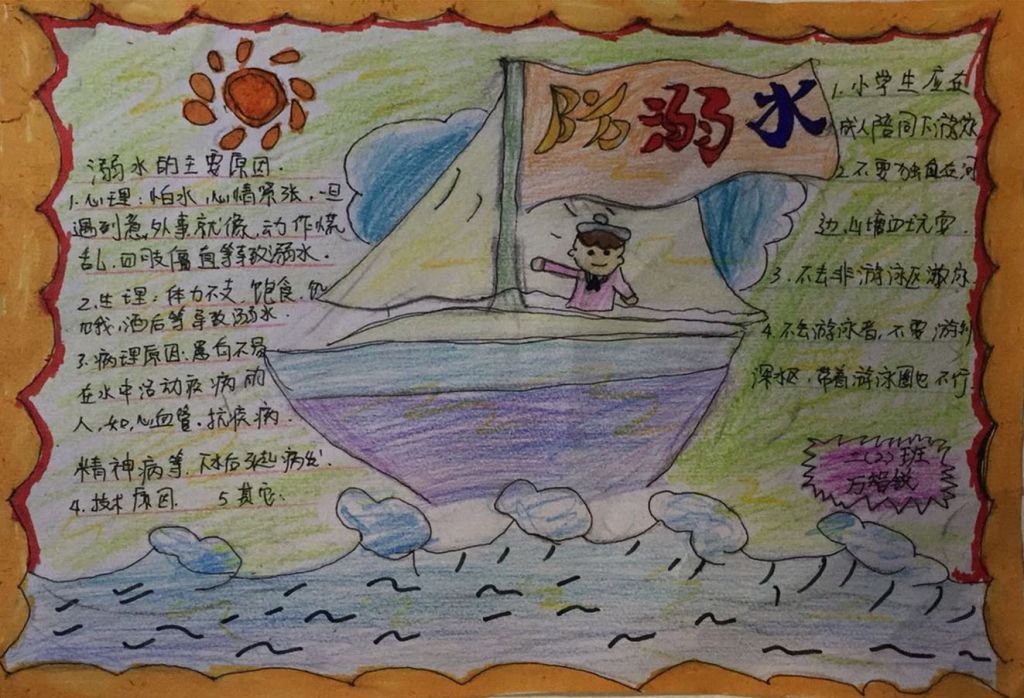 防溺水
溺水的主要原因.
1.心理:怕水,心情紧张,一旦
遇到意外事就像,动作慌
乱,四肢僵直等导致溺水.
2.生理:体力不支,饱食,饥
饿,酒后等导致溺水.
3.病理原因:患有不易
在水中活动疾病的
人,如,心血管.抗疾病.
精神病等,下水后引起病发.
4.技术原因. 5其它.
1.小学生应在
成人陪同下游泳
2.不要独自在河
边,山塘四玩耍.
3.不去非游泳区游泳.
4.不会游泳者,不要游到
深水区,带着游泳圈也不行.
二(2)班